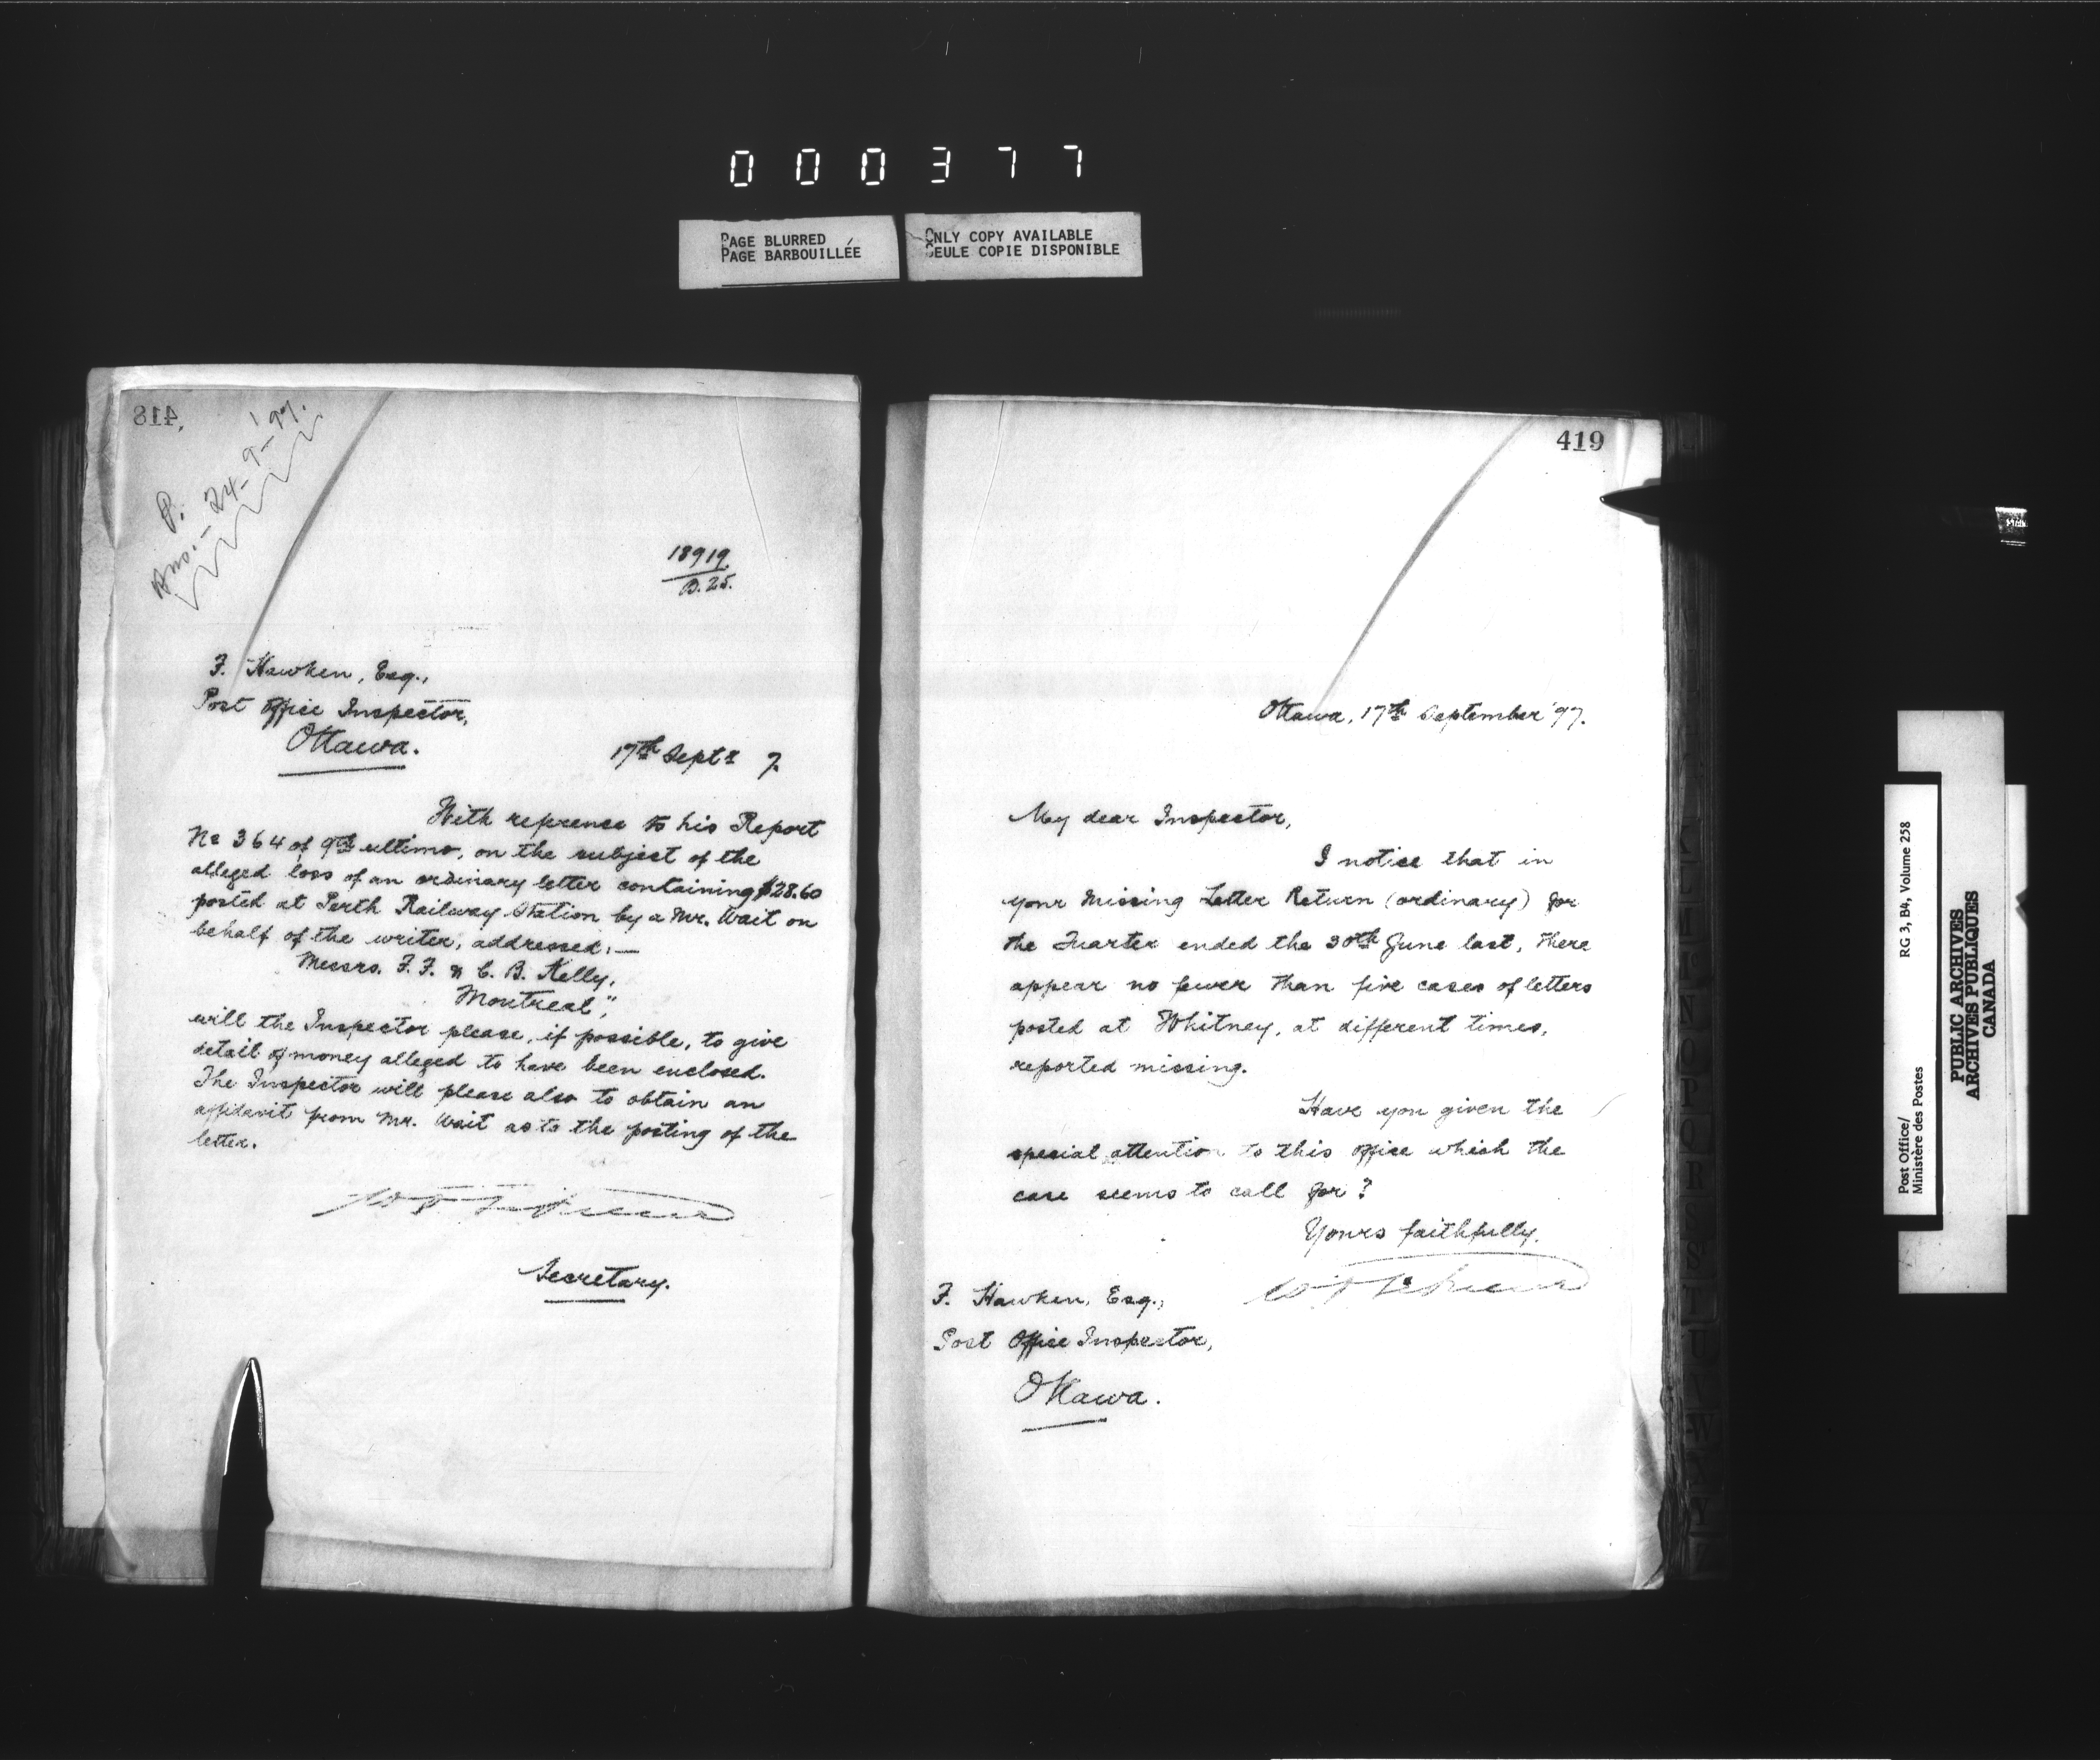 000377
PAGE BLURRED
PAGE BARBOUILLÉE
ONLY COPY AVAILABLE
SEULE COPIE DISPONIBLE
418
P.
Ans. - 24-9-'97.
18919
B. 25.
F. Hawken, Esq.,
Post Office Inspector,
Ottawa.
17th Sept r 7.
With reference to his Report
No 364 of 9th ultimo, on the subject of the
alleged loss of an ordinary letter containing $28.60
posted at Perth Railway Station by a Mr. Wait on
behalf of the writer, addressed:—
Messrs. F. F. & C. B. Kelly,
Montreal",
will the Inspector please, if possible, to give
detail of money alleged to have been enclosed.
The Inspector will please also to obtain an
affidavit from Mr. Wait as to the posting of the
letter.
Secretary.
419
Ottawa, 17th September '97.
My dear Inspector,
I notice that in
your Missing Letter Return (ordinary) for
the Quarter ended the 30th June last, there
appear no fewer than five cases of letters
posted at Whitney, at different times,
reported missing.
Have you given the
special attention to this office which the
case seems to call for?
Yours faithfully,
F. Hawken, Esq.,
Post Office Inspector,
Ottawa.
Post Office/
Ministère des Postes
RG 3, B4, Volume 258
PUBLIC ARCHIVES
ARCHIVES PUBLIQUES
CANADA